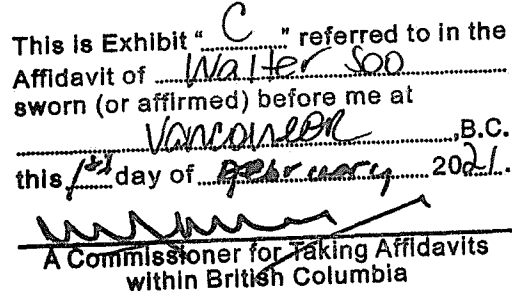 This is Exhibit "C" referred to in the
Affidavit of Walter Soo
sworn (or affirmed) before me at
Vancouver, B.C.
this 1st day of February 2021.
A Commissioner for Taking Affidavits
within British Columbia